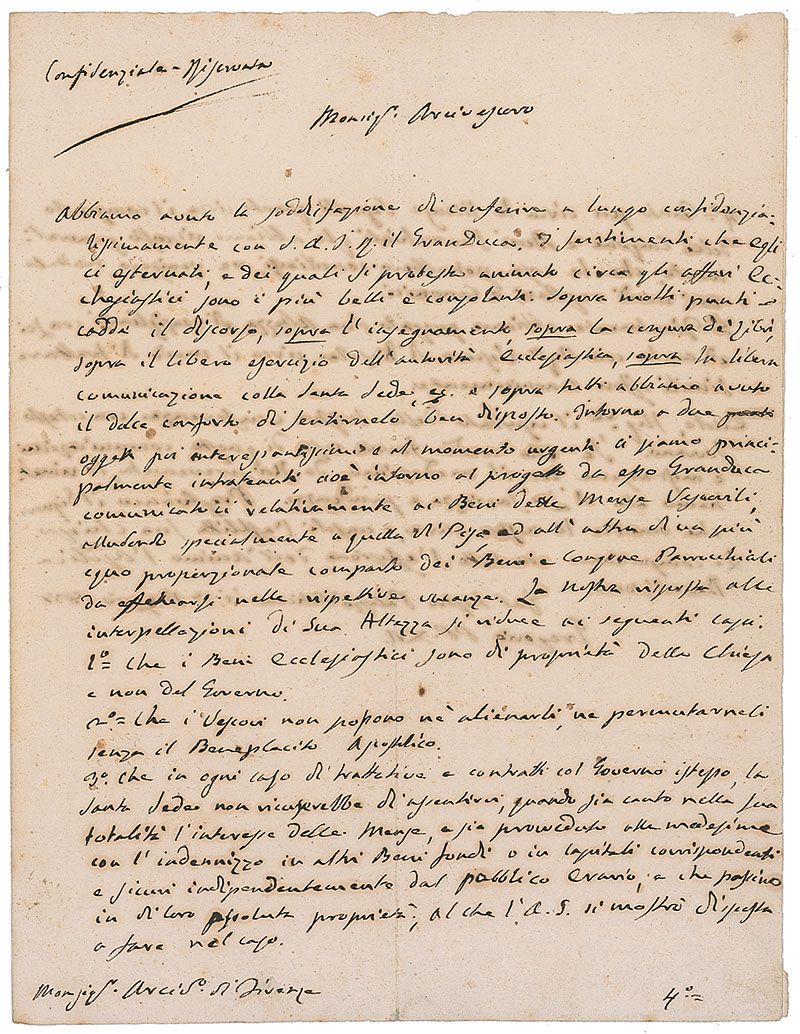 Confidenziale - Riservata
Monsigr. Arcivescovo
Abbiamo avuto la soddisfazione di conferire a lungo confidenzia-
lissimamente con S. A. I. R. il GranDuca. I sentimenti che egli
ci esternati, e dei quali si protesta animato circa gli affari Ec-
chesiastici sono i più belli e consolanti. Sopra molti punti
cadde il discorso, sopra l'insegnamento, sopra la censura de' libri,
sopra il libero esercizio dell'autorità Ecclesiastica, sopra la libera
comunicazione colla Santa Sede, ec. e sopra tutti abbiamo avuto
il dolce conforto di sentirnelo ben disposto. Intorno a due
oggetti poi interessantissimi e al momento urgenti ci siamo princi-
palmente intratenuti, cioè intorno al progetto da esso Granduca
comunicatoci relativamente ai Beni delle Mense Vescovili,
alludendo specialmente a quella di Pisa, ed all'altro di un più
equo proporzionale comparto dei Beni e Congrue Parrocchiali
da effettuarsi nelle rispettive vacanze. La nostra risposta alle
interpellazioni di Sua Altezza si riduce ai seguenti capi.
1º= Che i Beni Ecclesiastici sono di proprietà della Chiesa
e non del Governo.
2º= Che i Vescovi non possono nè alienarli, ne permutarneli
senza il Beneplacito Apostolico.
3º. Che in ogni caso di trattative e contratti col Governo istesso, la
Santa Sede non ricuserebbe di assentirvi, quando sia cauto nella sua
totalità l'interesse delle Mense, e sia proveduto alle medesime
con l'indennizzo in altri Beni fondi o in capitali corrispondenti
e sicuri indipendentemente dal pubblico Erario, e che passino
in di loro assoluta proprietà, al che l'A. S. si mostrò disposta
a fare nel caso.
Monsigr. Arcivo. di Firenze
4º=